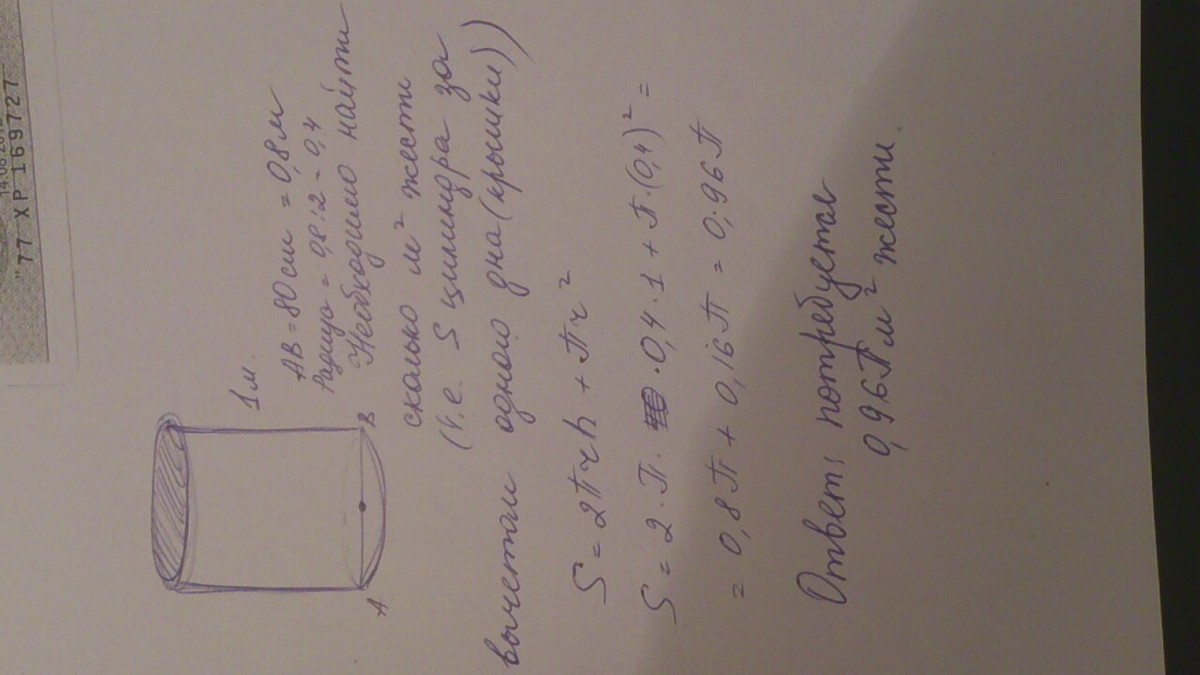 77 ХР 169727
1 м.
АВ = 80 см = 0,8 м
Радиус = 0,8 : 2 = 0,4
Необходимо найти
сколько м² жести
(т.е. S цилиндра за
вычетом одного дна (крышки))
А
В
S = 2πrh + πr²
S = 2 · π · 0,4 · 1 + π · (0,4)² =
= 0,8π + 0,16π = 0,96π
Ответ: потребуется
0,96π м² жести.